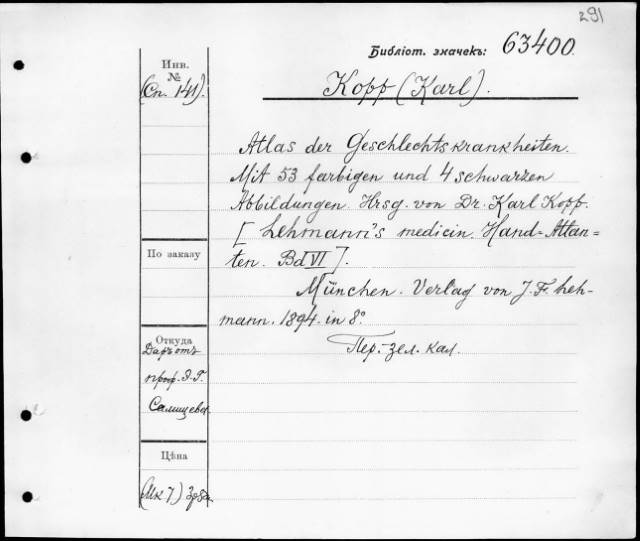 291
Библіот. значекъ: 63400.
Инв.
№
(Сп. 141).
Kopp (Karl).
Atlas der Geschlechtskrankheiten.
Mit 53 farbigen und 4 schwarzen
Abbildungen. Hrsg. von Dr. Karl Kopp.
[Lehmann's medicin. Hand-Atlan-
ten. Bd VI].
München. Verlag von J. F. Leh-
mann. 1894. in 8°
Пер. зел. кал.
По заказу
Откуда
Даръ отъ
проф. Э. Г.
Салищева.
Цѣна
(Мк 7)